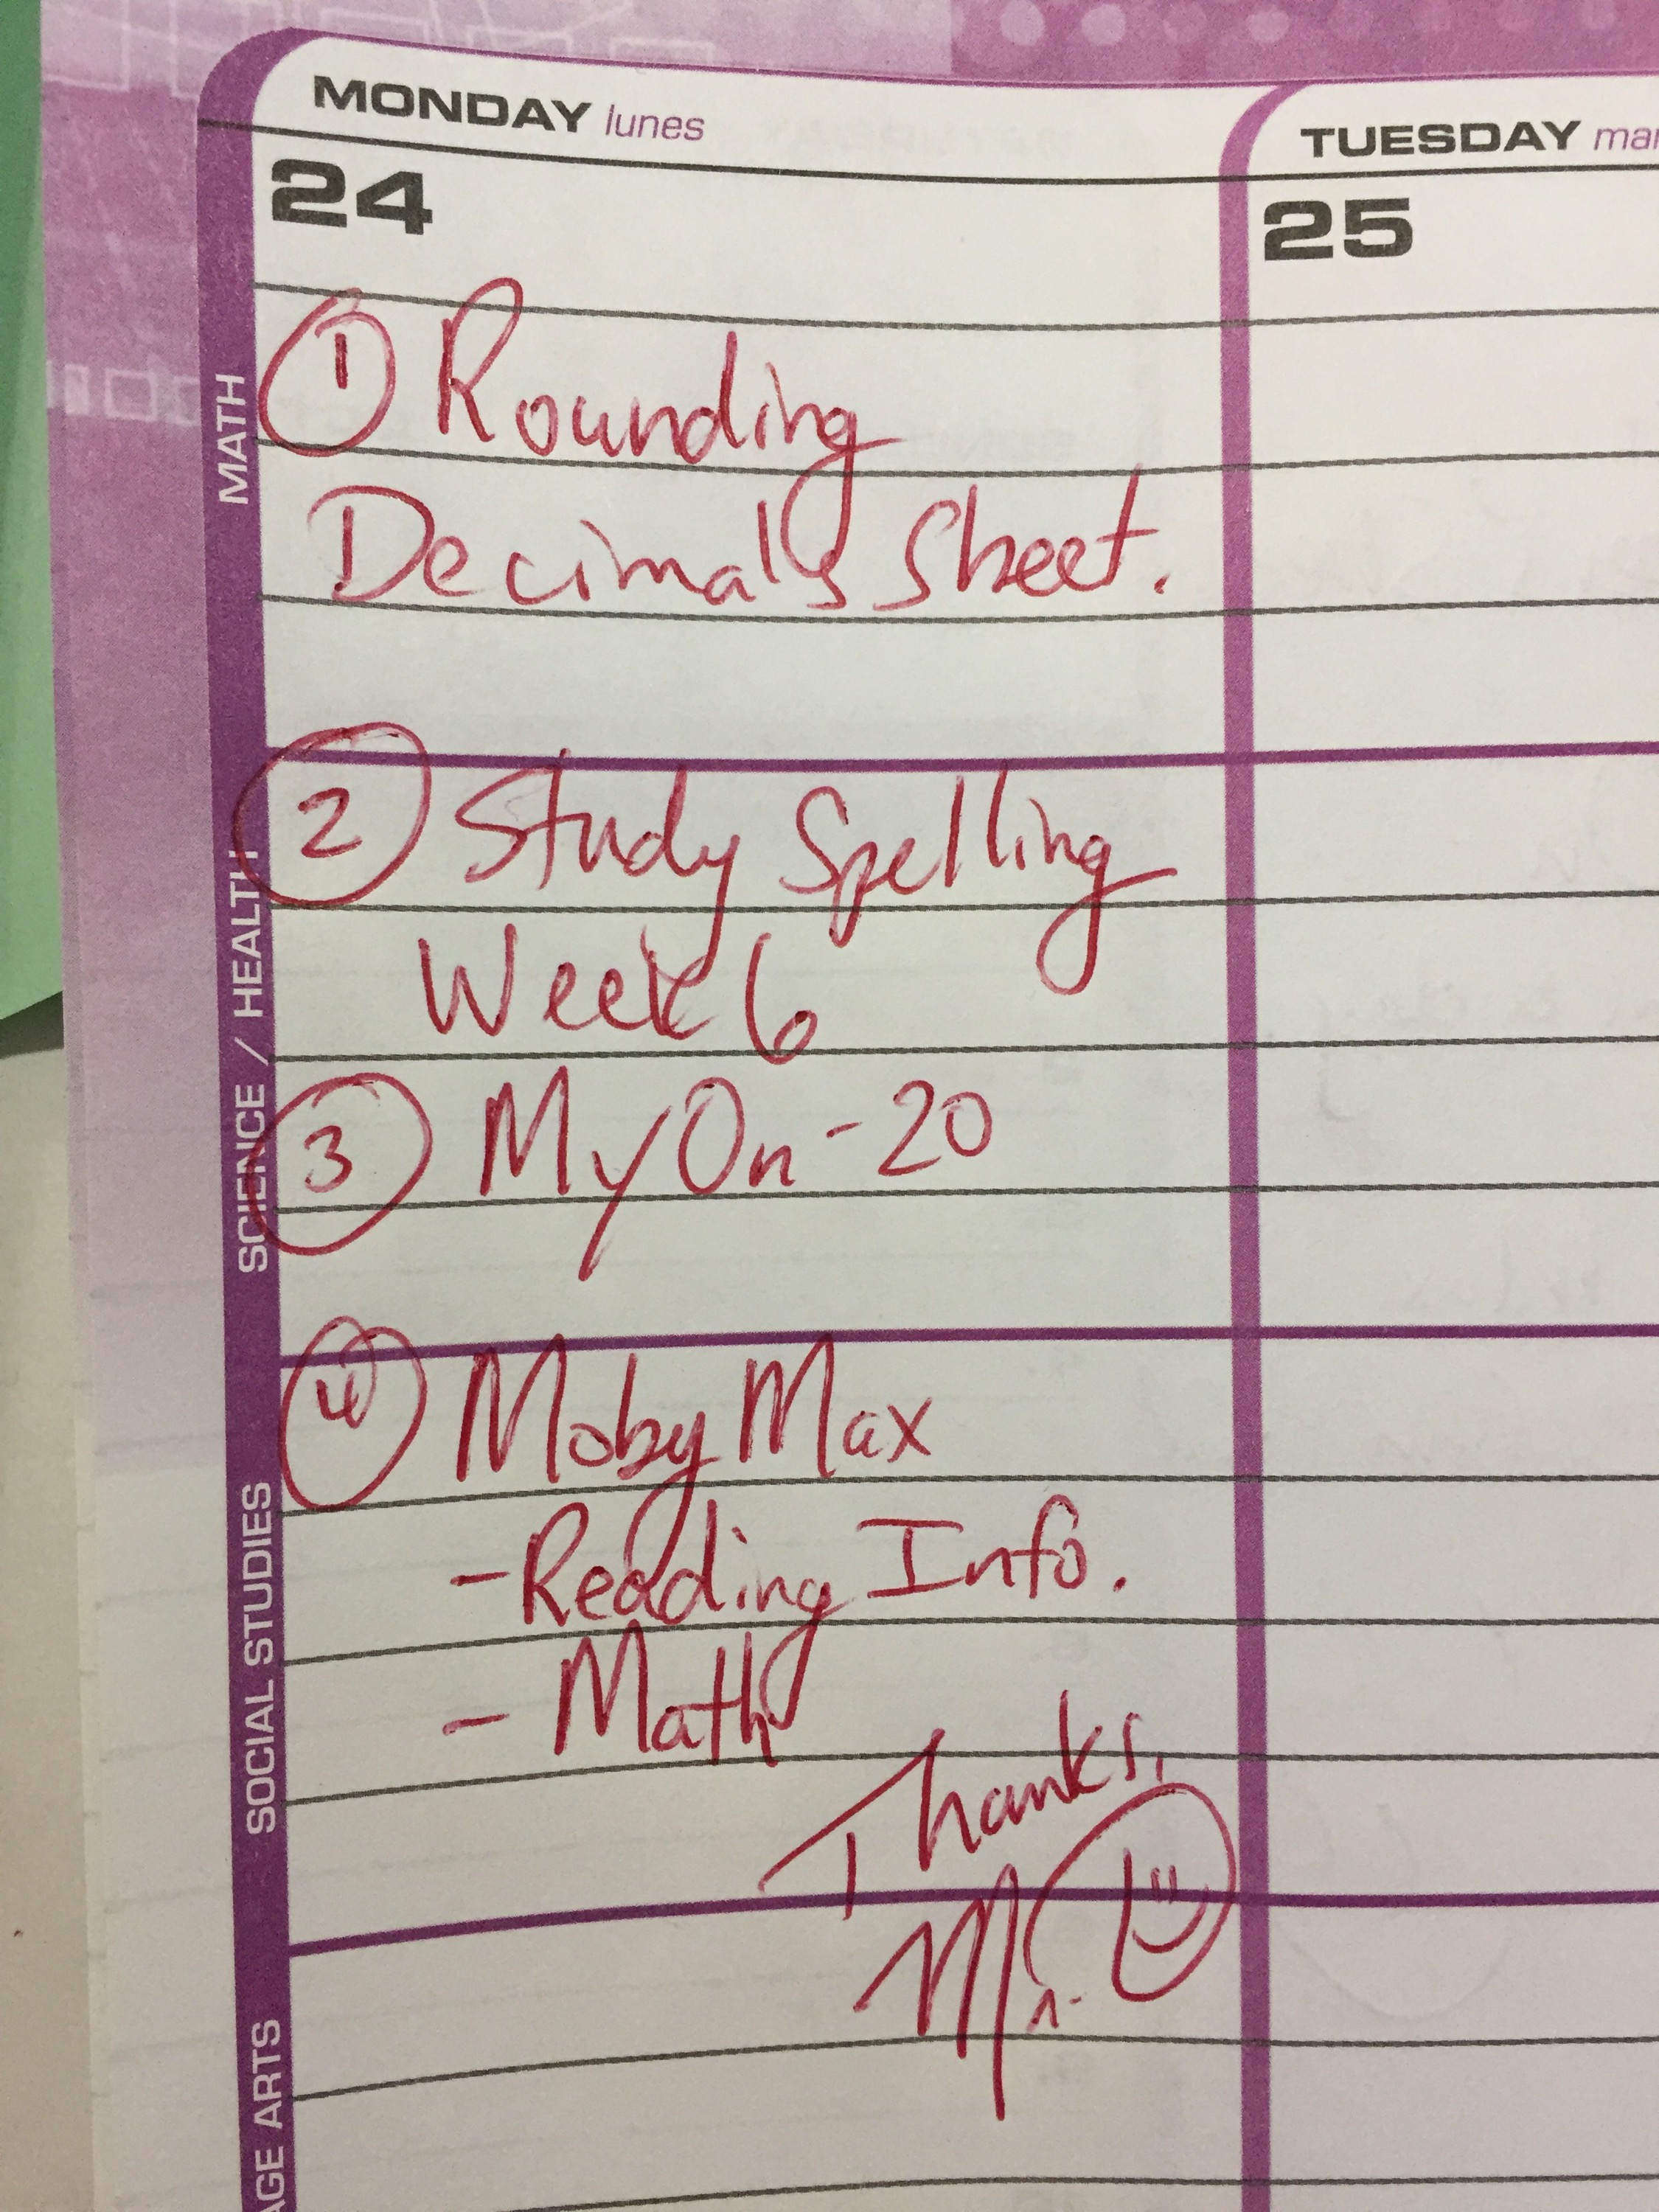 MONDAY lunes
TUESDAY mar
24
25
MATH
① Rounding
Decimals Sheet.
SCIENCE / HEALTH
② Study Spelling
Week 6
③ MyOn - 20
SOCIAL STUDIES
④ Moby Max
- Reading Info.
- Math
Thanks,
Mr.
AGE ARTS